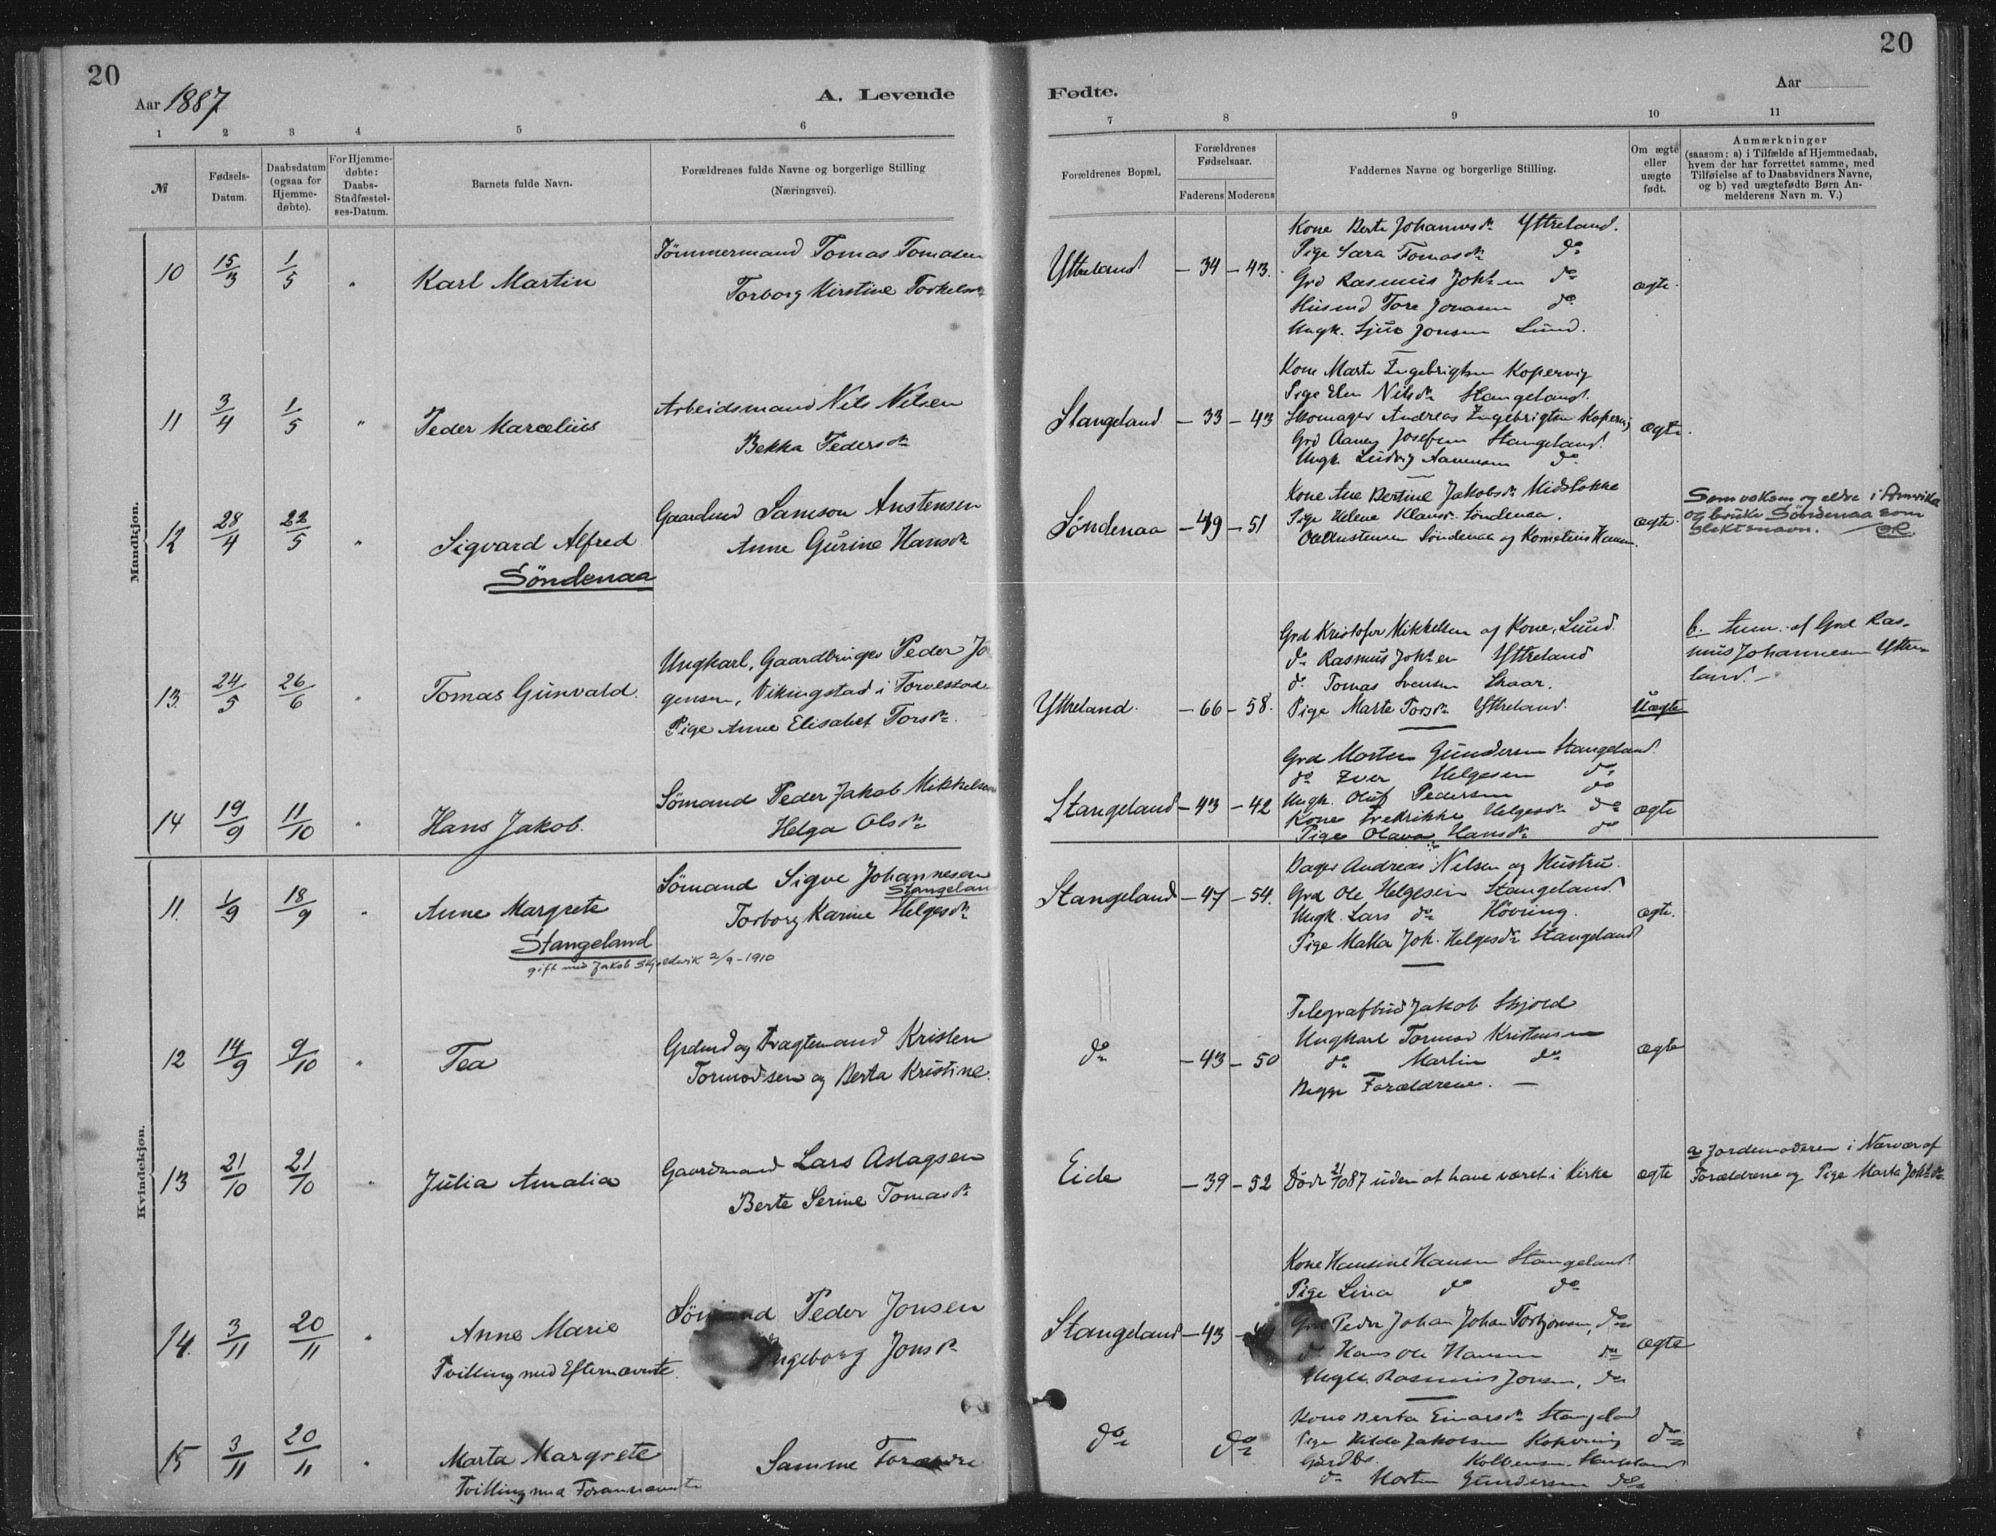 20
20
Aar 1887
A. Levende
Fødte.
Aar
1 2 3 4 5 6
7 8 9 10 11
№
Fødsels-
Datum.
Daabsdatum
(ogsaa for
Hjemme-
døbte).
For Hjemme-
døbte:
Daabs-
Stadfæstel-
ses-Datum.
Barnets fulde Navn.
Forældrenes fulde Navne og borgerlige Stilling
(Næringsvei).
Forældrenes Bopæl.
Forældrenes
Fødselsaar.
Faderens Moderens
Faddernes Navne og borgerlige Stilling.
Om ægte
eller
uægte
født.
Anmærkninger
(saasom: a) i Tilfælde af Hjemmedaab,
hvem der har forrettet samme, med
Tilføielse af to Daabsvidners Navne,
og b) ved uægtefødte Børn An-
melderens Navn m. V.)
Mandkjøn.
10 15/3 1/5 " Karl Martin
Tømmermand Tomas Tomasen
Torborg Kirstine Torkelsdr
Ytreland - 34 - 43.
Kone Berta Johannesdr Ytreland.
Pige Sara Tomasdr do
Grd Rasmus Johsen do
Husmd Tore Jonasen do
Ungk. Sjur Jonsen Lund.
ægte.
11 3/4 1/5 " Peder Marcelius
Arbeidsmand Nils Nilsen
Bekka Pedersdr
Stangeland - 33 - 43
Kone Marte Engebrigtsen Kopervig
Pige Elen Nilsdr Stangeland.
Skomager Andreas Engebrigtsen Kopervig
Grd Aanen Josefsen Stangeland.
Ungk. Ludvig Aanensen do
ægte.
12 28/4 22/5 " Sigvard Alfred
Søndenaa
Gaardmd Samson Anstensen
Anne Gurine Hansdr
Søndenaa - 49 - 51
Kone Ane Bertine Jakobsdr Midstokke
Pige Helene Klausdr Søndenaa.
Ole Anstensen Søndenaa og Kornelius Hansen.
ægte.
Som voksen og eldre i Amerika
og bruke Søndenaa som
slektsnavn.
13. 24/5 26/6 " Tomas Gunvald.
Ungkarl, Gaardbruger Peder Jo-
gensen, Vikingstad i Torvestad
Pige Anne Elisabet Torsdr.
Ytreland. - 66 - 58.
Grd Kristofer Mikkelsen og Kone, Lund.
do Rasmus Johsen Ytreland
do Tomas Svensen Skaar.
Pige Marte Torsdr Ytreland.
Uægte
b. Anm. af Grd Ras-
mus Johannesen Ytre-
land.
14 19/9 11/10 " Hans Jakob.
Sømand Peder Jakob Mikkelsen
Helga Olsdr
Stangeland - 43 - 42
Grd Morten Gundersen Stangeland.
do Iver Helgesen do
Ungk. Oluf Pedersen do
Kone Fredrikke Helgesdr do
Pige Olava Hansdr do
ægte
Kvindekjøn.
11. 1/9 18/9 " Anne Margrete
Stangeland
gift med Jakob Skjoldevik 2/9-1910
Sømand Sigve Johannesen
Stangeland
Torborg Karine Helgesdr
Stangeland - 47 - 54.
Bager Andreas Nilsen og Hustru.
Grd Ole Helgesen Stangeland
Ungk. Lars do Høvring.
Pige Malla Joh. Helgesdr Stangeland
ægte.
12 14/9 9/10 " Tea
Grdmd og Fragtemand Kristen
Tormodsen og Berta Kristine.
do - 43 - 50
Telegrafbud Jakob Skjold
Ungkarl Tormod Kristensen
do Martin do
Begge Forældrene.
ægte
13 21/10 21/10 " Julia Amalia
Gaardmand Lars Aslagsen
Berte Serine Tomasdr
Eide - 39 - 52
Døde 21/10 87 uden at have været i Kirke
ægte
a Jordemoderen i Nærvær af
Forældrene og Pige Marta Johsdr
14. 3/11 20/11 " Anne Marie
Tvilling med Efternævnte.
Sømand Peder Jonsen
Ingeborg Jonsdr
Stangeland - 43 -
Kone Hansine Hansen Stangeland.
Pige Lina do do
Grd Peder Johan Johan Torbjørnsen, do
do Hans Ole Hansen do
Ungk. Rasmus Jonsen, do
ægte
15 3/11 20/11 " Marta Margrete
Tvilling med Forannævnte
Samme Forældre
do do
Kone Berta Einarsdr Stangeland
Pige Hilda Jakobsen Kopervig
Gårdbr. Kolbensen Stangeland
do Morten Gundersen do
do